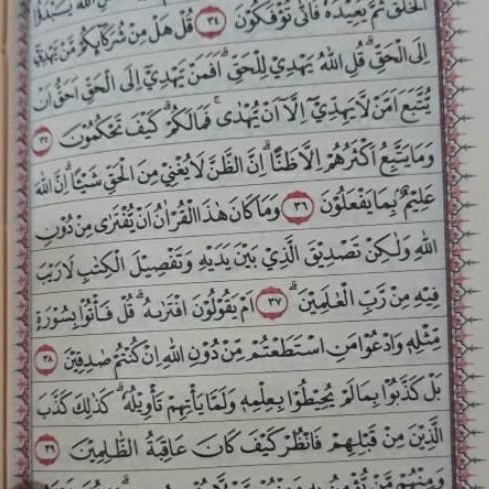 الْخَلْقَ ثُمَّ يُعِيْدُهٗ فَاَنّٰى تُؤْفَكُوْنَ ﴿٣٤﴾ قُلْ هَلْ مِنْ شُرَكَاۤىِٕكُمْ مَّنْ يَّهْدِيْٓ
اِلَى الْحَقِّۗ قُلِ اللّٰهُ يَهْدِيْ لِلْحَقِّۗ اَفَمَنْ يَّهْدِيْٓ اِلَى الْحَقِّ اَحَقُّ اَنْ
يُّتَّبَعَ اَمَّنْ لَّا يَهِدِّيْٓ اِلَّآ اَنْ يُّهْدٰىۚ فَمَا لَكُمْۗ كَيْفَ تَحْكُمُوْنَ ﴿٣٥﴾
وَمَا يَتَّبِعُ اَكْثَرُهُمْ اِلَّا ظَنًّاۗ اِنَّ الظَّنَّ لَا يُغْنِيْ مِنَ الْحَقِّ شَيْـًٔاۗ اِنَّ اللّٰهَ
عَلِيْمٌ ۢبِمَا يَفْعَلُوْنَ ﴿٣٦﴾ وَمَا كَانَ هٰذَا الْقُرْاٰنُ اَنْ يُّفْتَرٰى مِنْ دُوْنِ
اللّٰهِ وَلٰكِنْ تَصْدِيْقَ الَّذِيْ بَيْنَ يَدَيْهِ وَتَفْصِيْلَ الْكِتٰبِ لَا رَيْبَ
فِيْهِ مِنْ رَّبِّ الْعٰلَمِيْنَۗ ﴿٣٧﴾ اَمْ يَقُوْلُوْنَ افْتَرٰىهُۗ قُلْ فَأْتُوْا بِسُوْرَةٍ
مِّثْلِهٖ وَادْعُوْا مَنِ اسْتَطَعْتُمْ مِّنْ دُوْنِ اللّٰهِ اِنْ كُنْتُمْ صٰدِقِيْنَ ﴿٣٨﴾
بَلْ كَذَّبُوْا بِمَا لَمْ يُحِيْطُوْا بِعِلْمِهٖ وَلَمَّا يَأْتِهِمْ تَأْوِيْلُهٗۗ كَذٰلِكَ كَذَّبَ
الَّذِيْنَ مِنْ قَبْلِهِمْ فَانْظُرْ كَيْفَ كَانَ عَاقِبَةُ الظّٰلِمِيْنَ ﴿٣٩﴾
وَمِنْهُمْ مَّنْ يُّؤْمِنُ بِهٖ